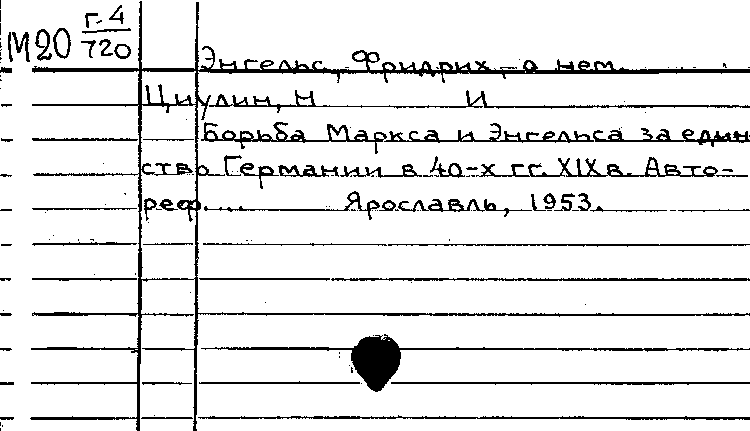 М20 Г-4/720
Энгельс, Фридрих, - о нем.
Циулин, Н И
Борьба Маркса и Энгельса за един-
ство Германии в 40-х гг. XIX в. Авто-
реф.... Ярославль, 1953.